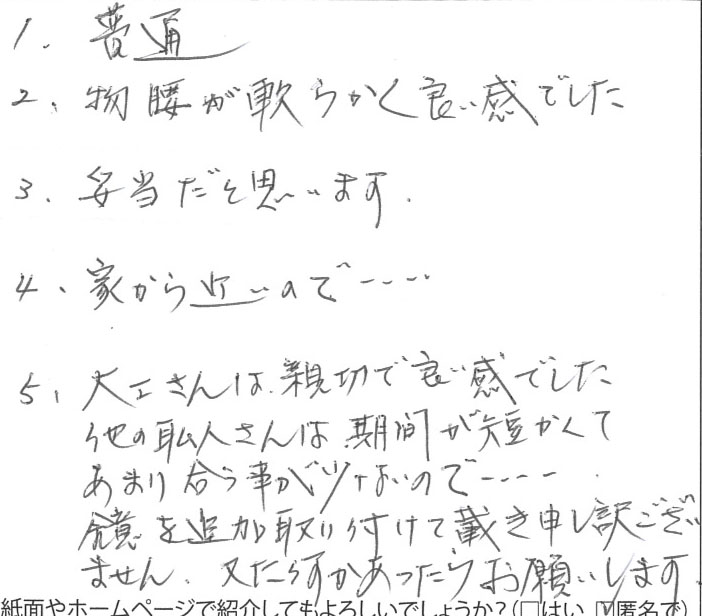 1. 普通
2、物腰が軟らかく良い感でした
3. 妥当だと思います.
4、家から近いので‥‥
5、大工さんは、親切で良い感でした
他の職人さんは期間が短かくて
あまり合う事が少ないので‥‥.
鏡を追加取り付けて戴き申し訳ござい
ません. 又た何かあったらお願いします.
紙面やホームページで紹介してもよろしいでしょうか?(□はい ☑匿名で)